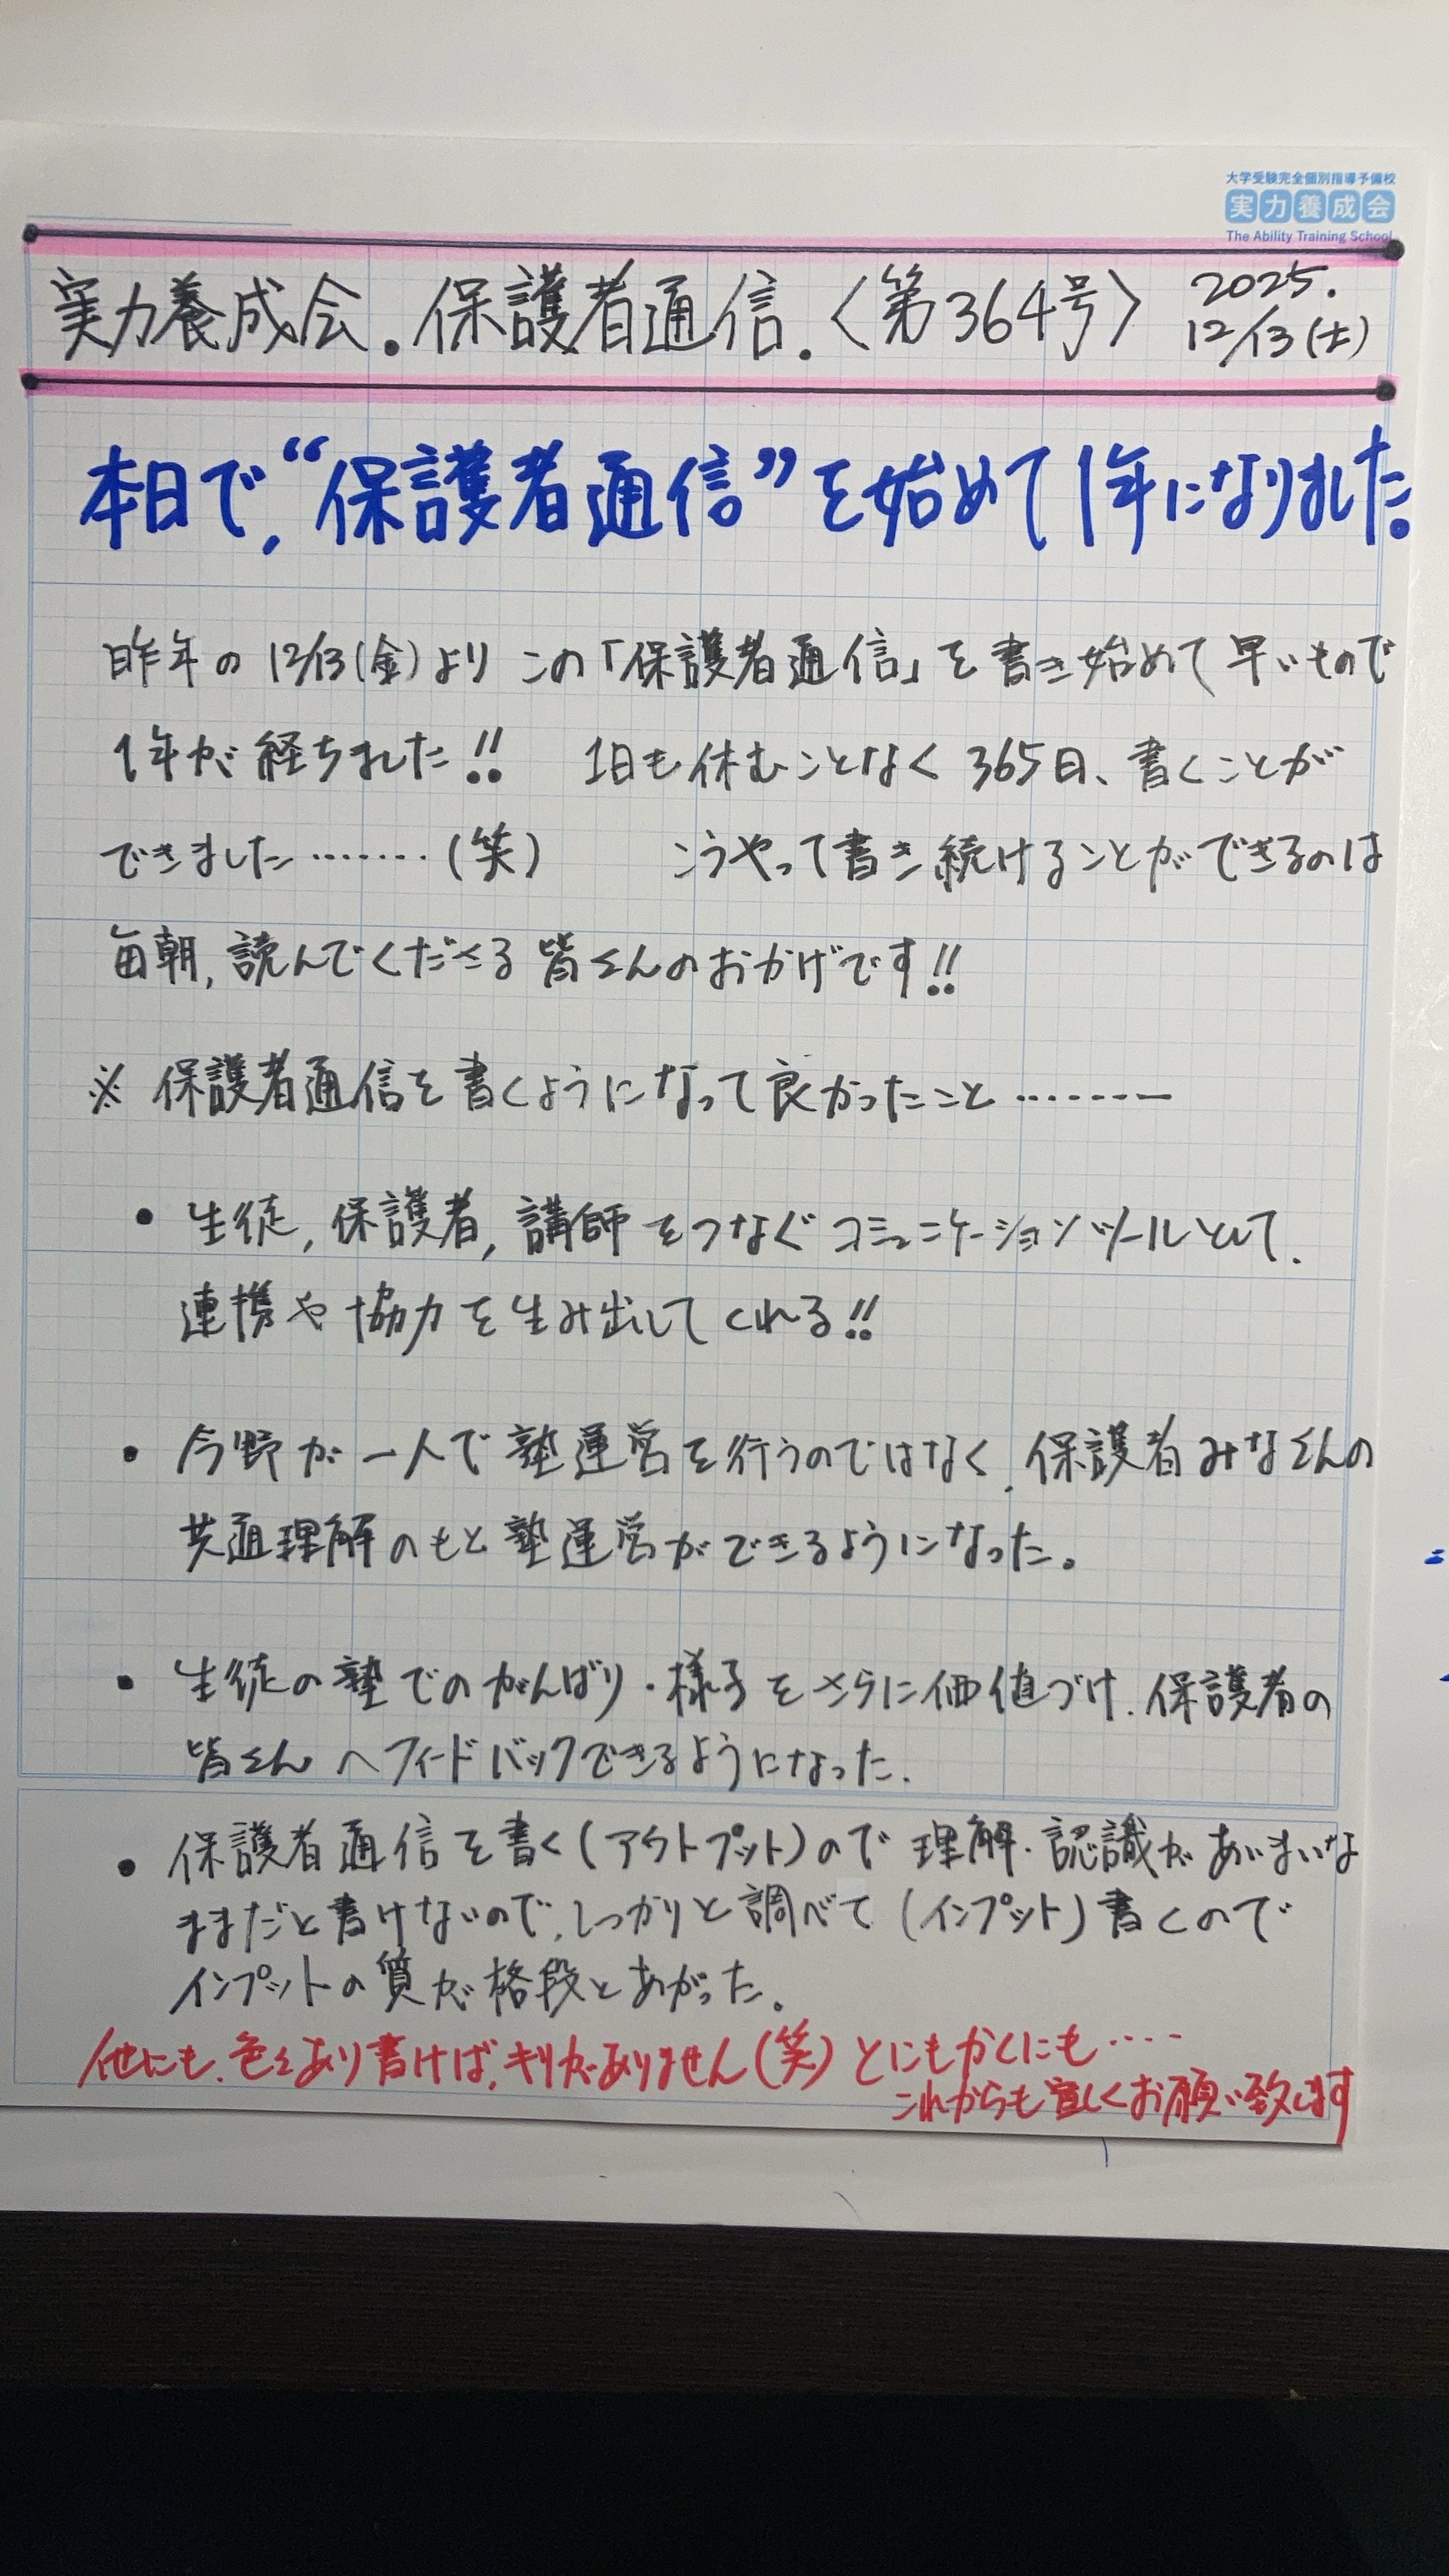 大学受験完全個別指導予備校
実力養成会
The Ability Training School
実力養成会.保護者通信.〈第364号〉 2025.
12/13(土)
本日で,“保護者通信”を始めて1年になりました。
昨年の12/13(金)よりこの「保護者通信」を書き始めて早いもので
1年が経ちました!! 1日も休むことなく365日、書くことが
できました‥‥‥‥(笑) こうやって書き続けることができるのは
毎朝,読んでくださる皆さんのおかげです!!
※ 保護者通信を書くようになって良かったこと‥‥‥‥
• 生徒,保護者,講師をつなぐコミュニケーションツールとして.
連携や協力を生み出してくれる!!
• 今野が一人で塾運営を行うのではなく,保護者みなさんの
共通理解のもと塾運営ができるようになった。
• 生徒の塾でのがんばり・様子をさらに価値づけ.保護者の
皆さんへフィードバックできるようになった.
• 保護者通信を書く(アウトプット)ので理解・認識があいまいな
ままだと書けないので,しっかりと調べて(インプット)書くので
インプットの質が格段とあがった。
他にも、色々あり書けば,キリがありません(笑)とにもかくにも‥‥
これからも宜しくお願い致します